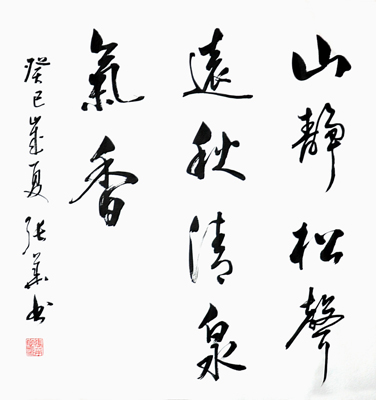 山靜松聲
遠秋清泉
氣香
癸巳歲夏 張華书